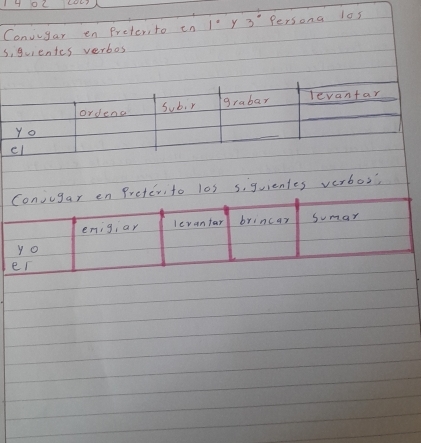 14 02
Conjugar en Preterito en 1° y 3° Persona los
siguientes verbos
ordeno subir grabar levantar
yo
el
Conjugar en Pretérito los siguientes verbos:
emigiar levantar brincar sumar
yo
el